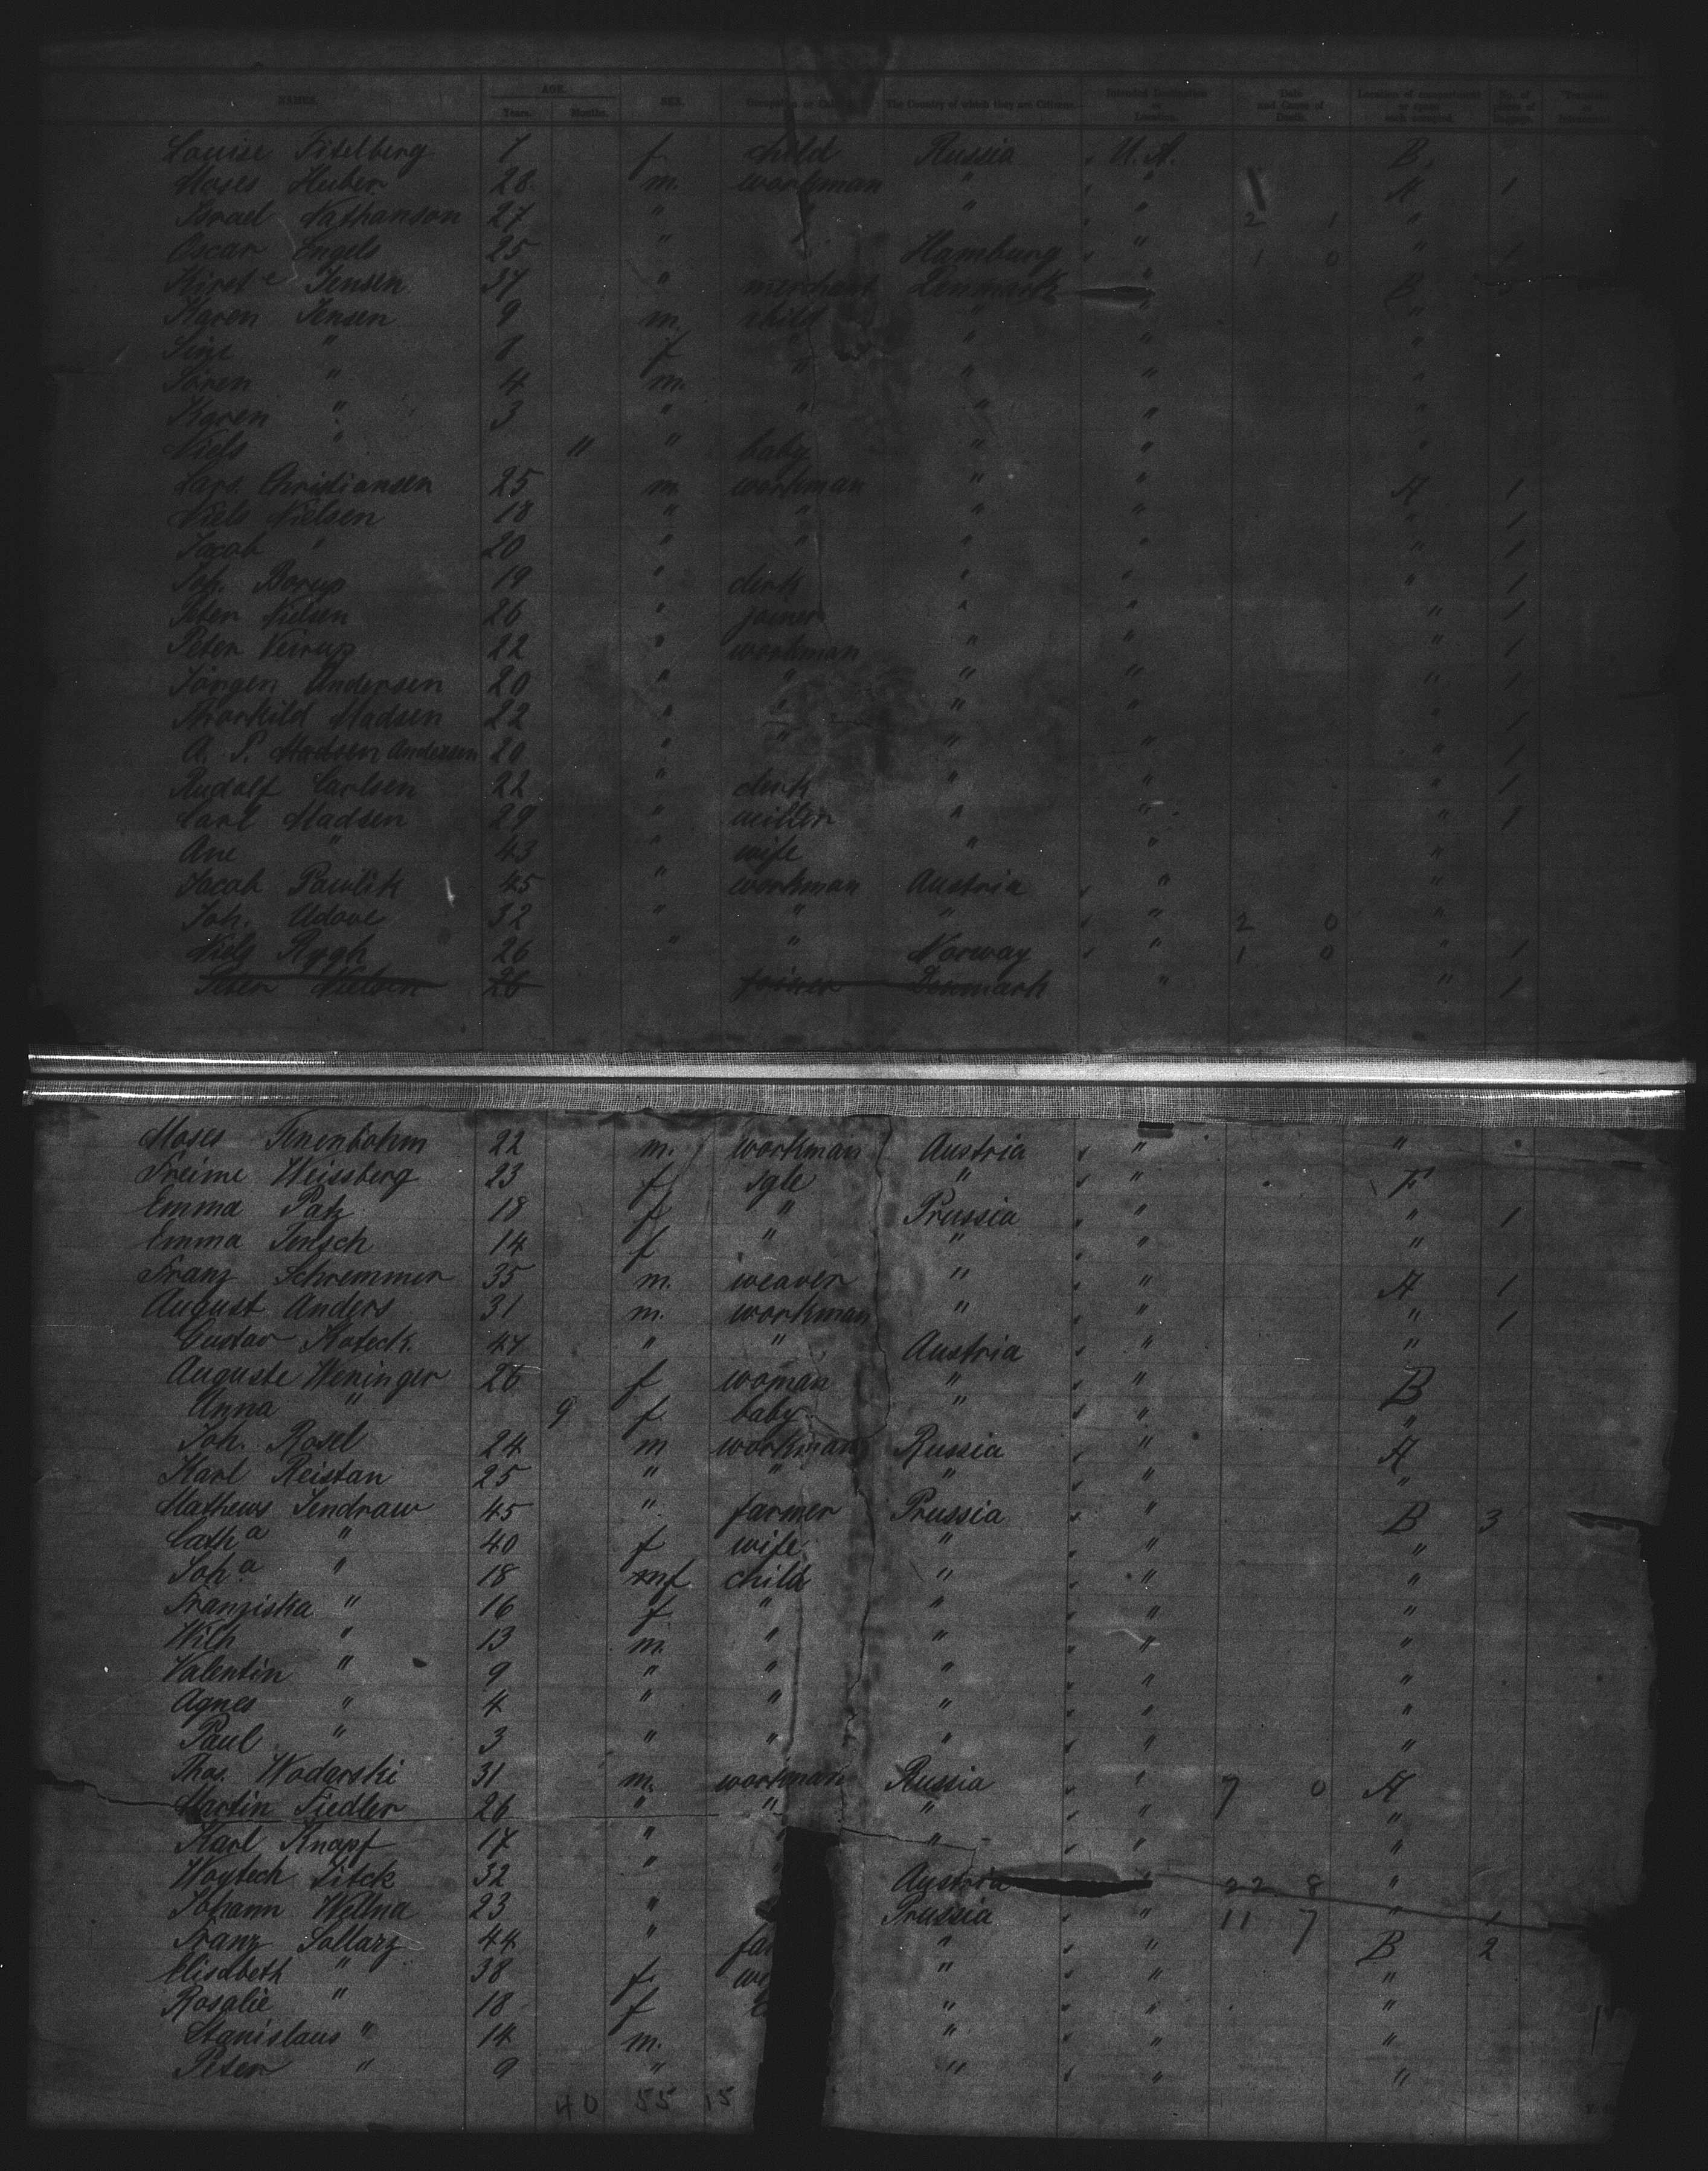 NAMES. AGE. Years. Months. SEX. Occupation or Calling The Country of which they are Citizens. Intended Destination or Location. Date and Cause of Death. Location of compartment or space each occupied. No. of pieces of Baggage. Transient or
Louise Titelberg 7 f child Russia U. A. B.
Moses Huber 28 m. workman " " A 1
Israel Nathanson 27 " " " " 2 1 "
Oscar Engels 25 " Hamburg " 1 0 " 1
Kirste Jensen 37 " merchant Denmark " B
Karen Jensen 9 m. child " " "
Sine " 8 f " " " "
Sören " 4 m. " " " "
Karen " 3 " " " " "
Niels " 11 " baby " " "
Lars Christiansen 25 m. workman " " A 1
Niels Nielsen 18 " " " " " 1
Jacob " 20 " " " " " 1
Joh. Borup 19 " clerk " " " 1
Peter Nielsen 26 " joiner " " " 1
Peter Veirup 22 " workman " " " 1
Jörgen Andersen 20 " " " " " 1
Thorkild Madsen 22 " " " " " 1
A. P. Madsen Andersen 20 " " " " " 1
Rudolf Carlsen 22 " clerk " " " 1
Carl Madsen 29 " miller " " " 1
Ane " 43 " wife " " "
Jacob Pawlik 45 " workman Austria " "
Joh. Udove 32 " " " " 2 0 "
Niels Rygh 26 " " Norway " 1 0 " 1
Peter Nielsen 26 joiner Denmark " " 1
Moses Tenenbohm 22 m. workman Austria " "
Freime Weissberg 23 f sgle " " F
Emma Patz 18 f " Prussia " " 1
Emma Jensch 14 f " " " "
Franz Schremmer 35 m. weaver " " A 1
August Anders 31 m. workman " " " 1
Gustav Koteck. 47 " " Austria " "
Auguste Weninger 26 f woman " " B
Anna " 9 f. baby " " "
Joh. Rosel 24 m workman Russia " A
Karl Reistan 25 " " " " "
Mathews Jendraw 45 " farmer Prussia " B 3
Catha " 40 f wife " " "
Joha " 18 mf child " " "
Franziska " 16 f " " " "
Wilh " 13 m. " " " "
Valentin " 9 " " " " "
Agnes " 4 " " " " "
Paul " 3 " " " " "
Thos. Wodarski 31 m. workman Russia " 7 0 A
Martin Fiedler 26 " " " " "
Karl Knapf 17 " " " "
Woytech Litck 32 " Austria " 22 8 "
Johann Wellna 23 " Prussia " 11 7 " 1
Franz Sollarz 44 " far " " B 2
Elisabeth " 38 f. wo " " "
Rosalie " 18 f c " " "
Stanislaus " 14 m. " " "
Peter " 9 " " " "
40 55 15